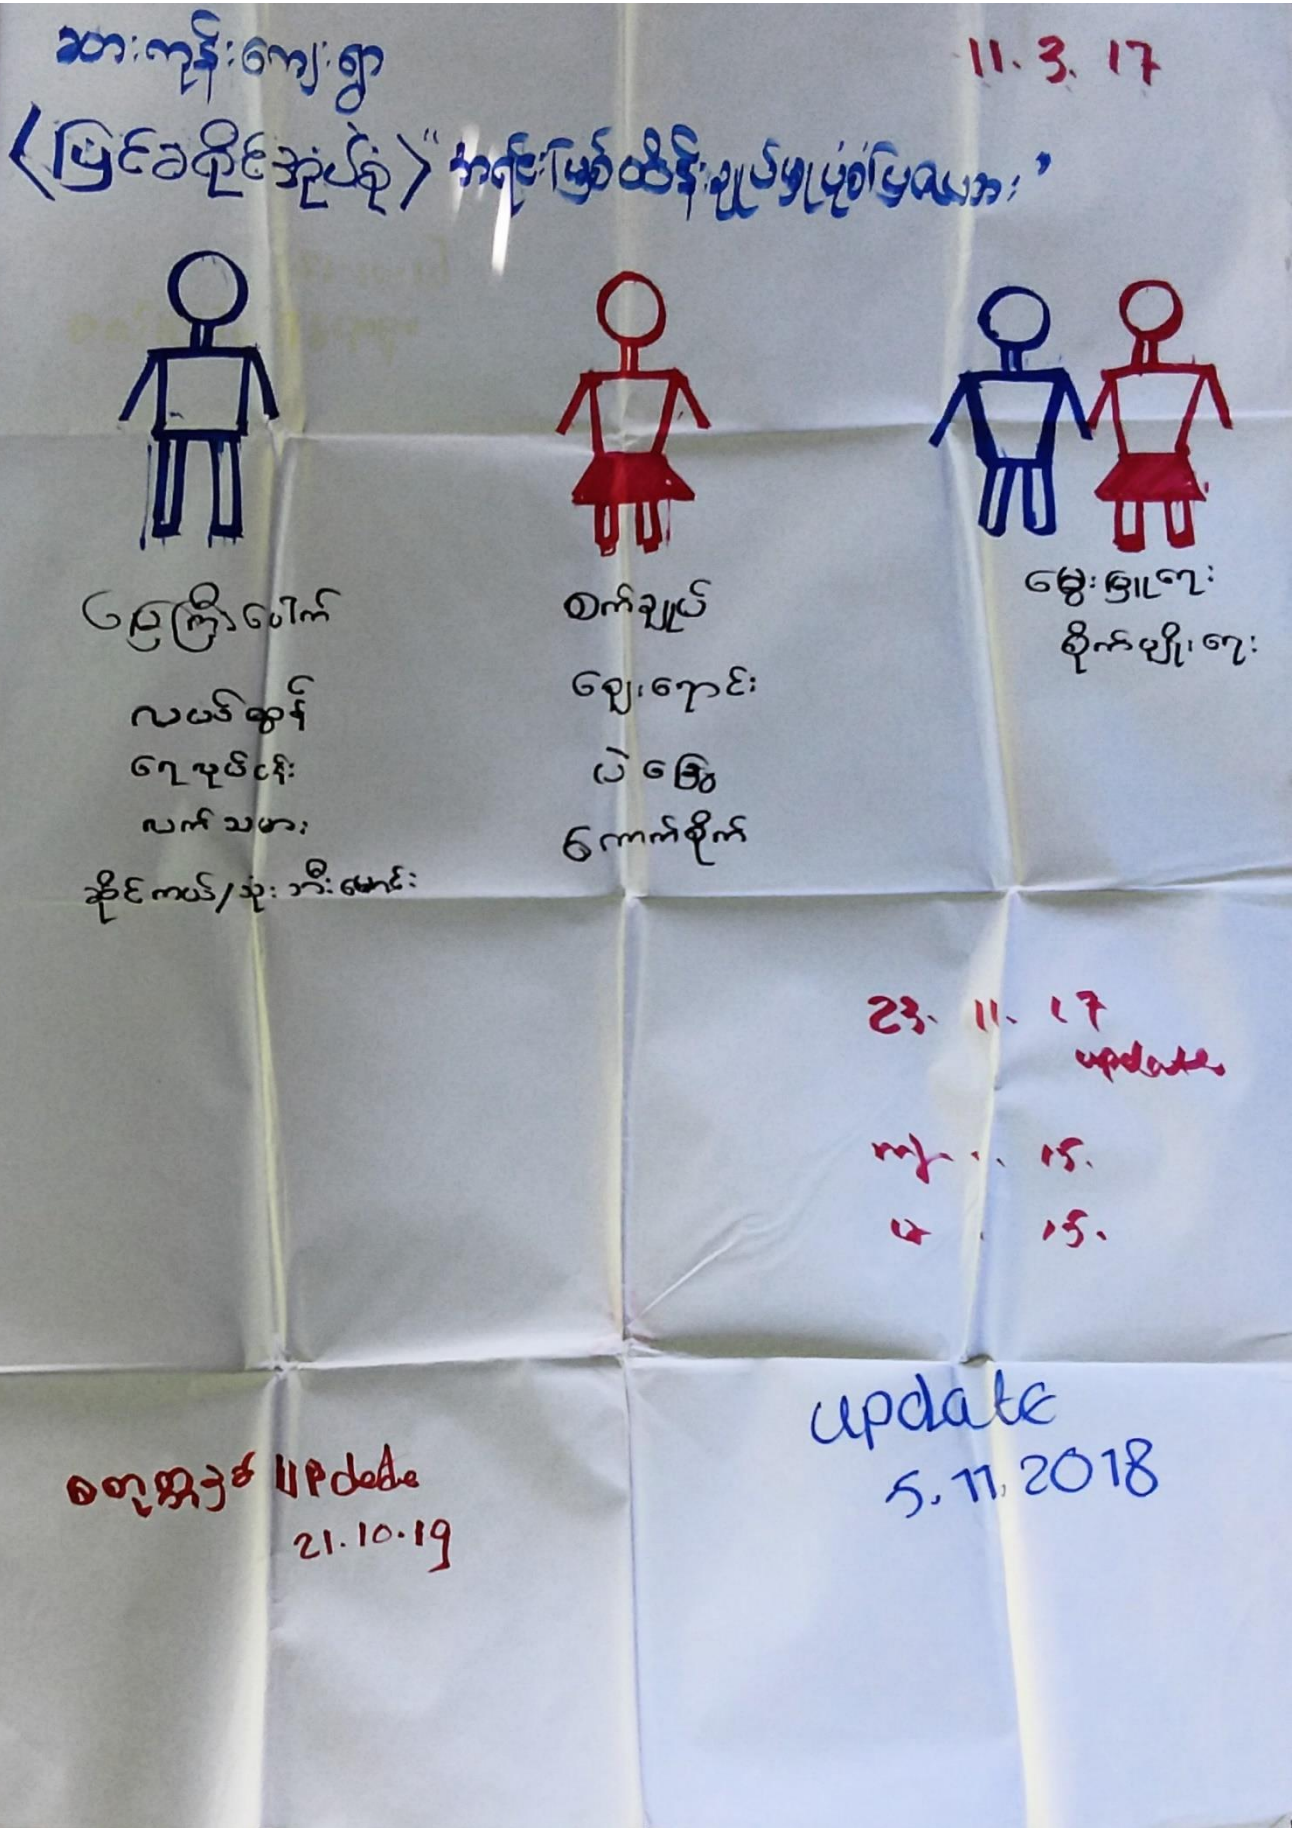 ဆားကုန်းကျေးရွာ
11. 3. 17
<ပြင်ခရိုင်အုပ်စု> "အရင်းမြစ်ထိန်းချုပ်မှုပုံစံပြဇယား"
မြေကြီးပေါက်
လယ်ထွန်
ရေလုပ်ငန်း
လက်သမား
ဆိုင်ကယ်/သုံးဘီးမောင်း
စက်ချုပ်
ဈေးရောင်း
ပဲခြွေ
ကောက်စိုက်
မွေးမြူရေး
စိုက်ပျိုးရေး
23. 11. 17
update
ကျား .. 15.
မ . 15.
update
5.11.2018
စတုတ္ထနှစ် update
21.10.19